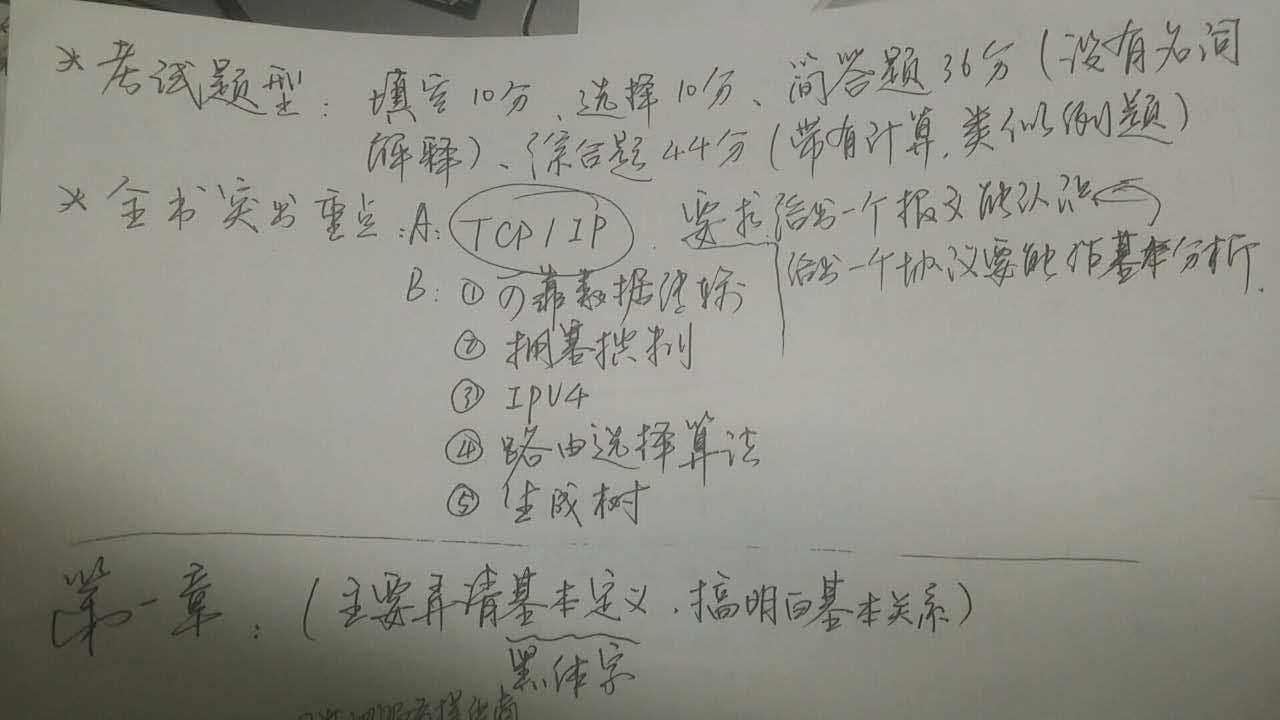 * 考试题型：填空10分、选择10分、简答题36分（没有名词
解释）、综合题44分（带有计算，类似例题）
* 全书突出重点：A: TCP/IP. 要求给出一个报文能认识
给出一个协议要能作基本分析.
B: ① 可靠数据传输
② 拥塞控制
③ IPV4
④ 路由选择算法
⑤ 生成树
第一章：（主要弄清基本定义，搞明白基本关系）
黑体字